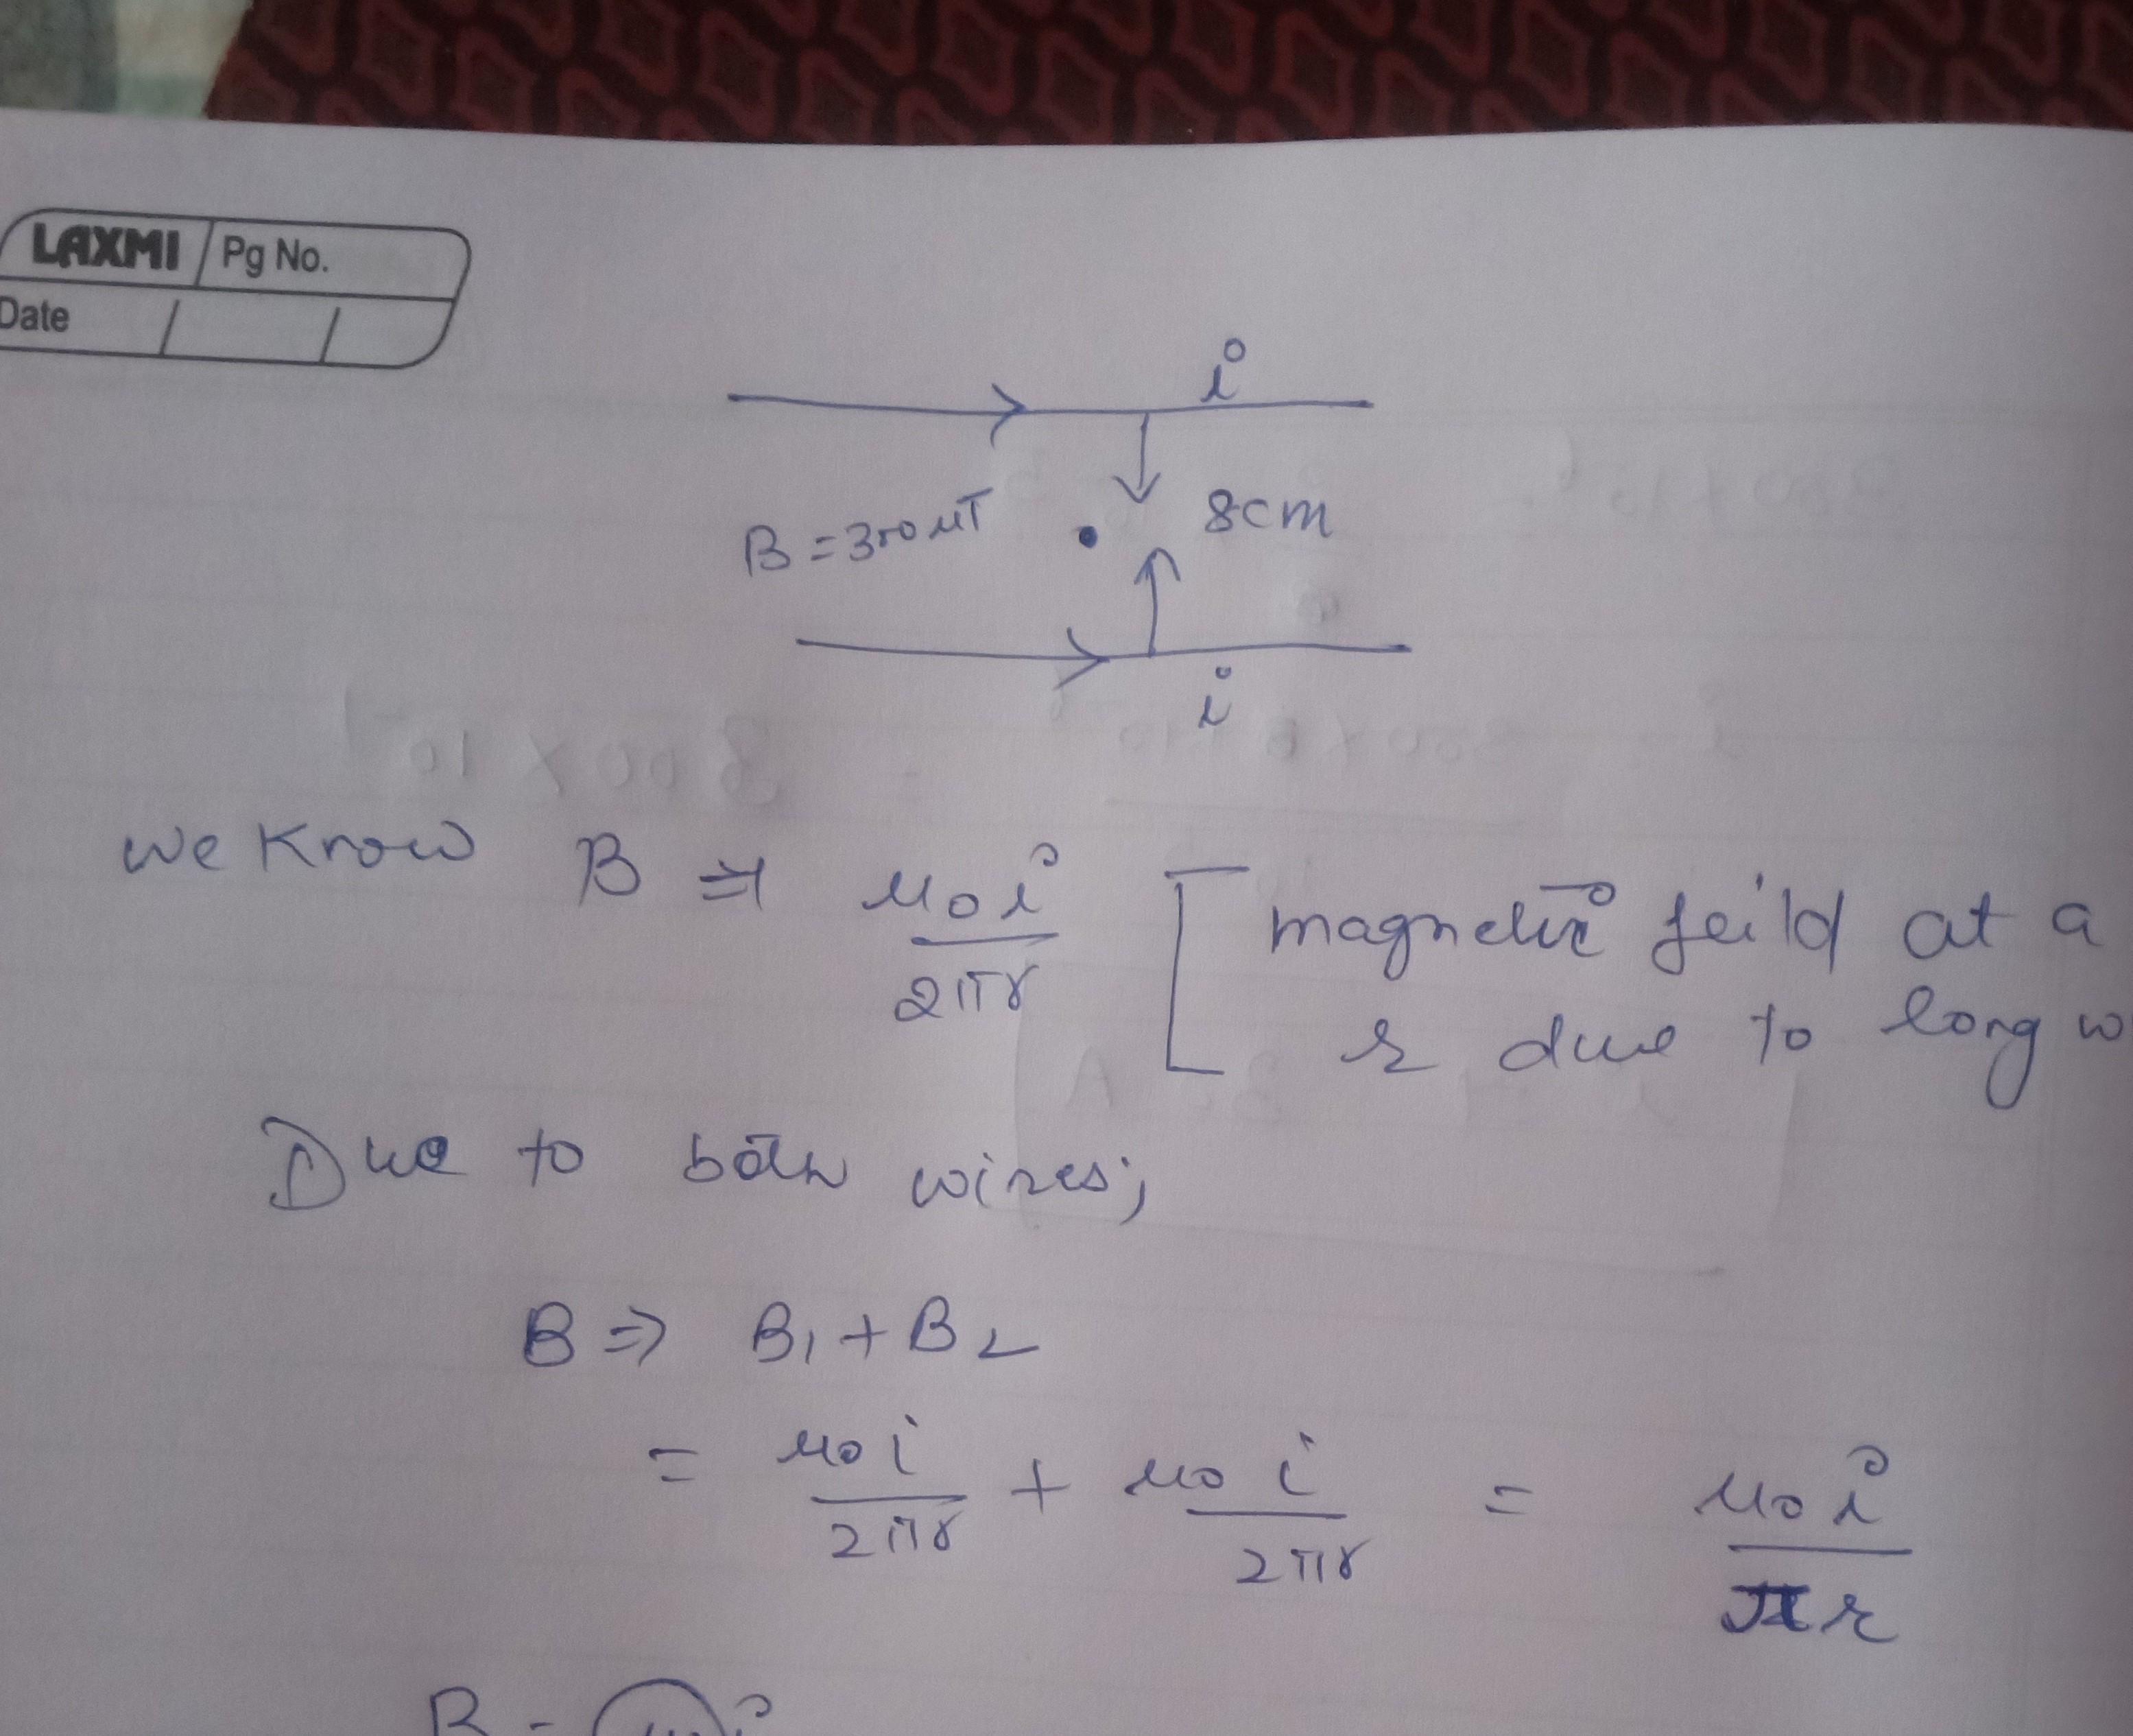 LAXMI Pg No.
Date / /
i
B = 300 μT 8cm
i
we know B ⇒ μ₀i / 2πr [ magnetic feild at a
r due to long w
Due to both wires;
B ⇒ B₁ + B₂
= μ₀i / 2πr + μ₀i / 2πr = μ₀i / πr